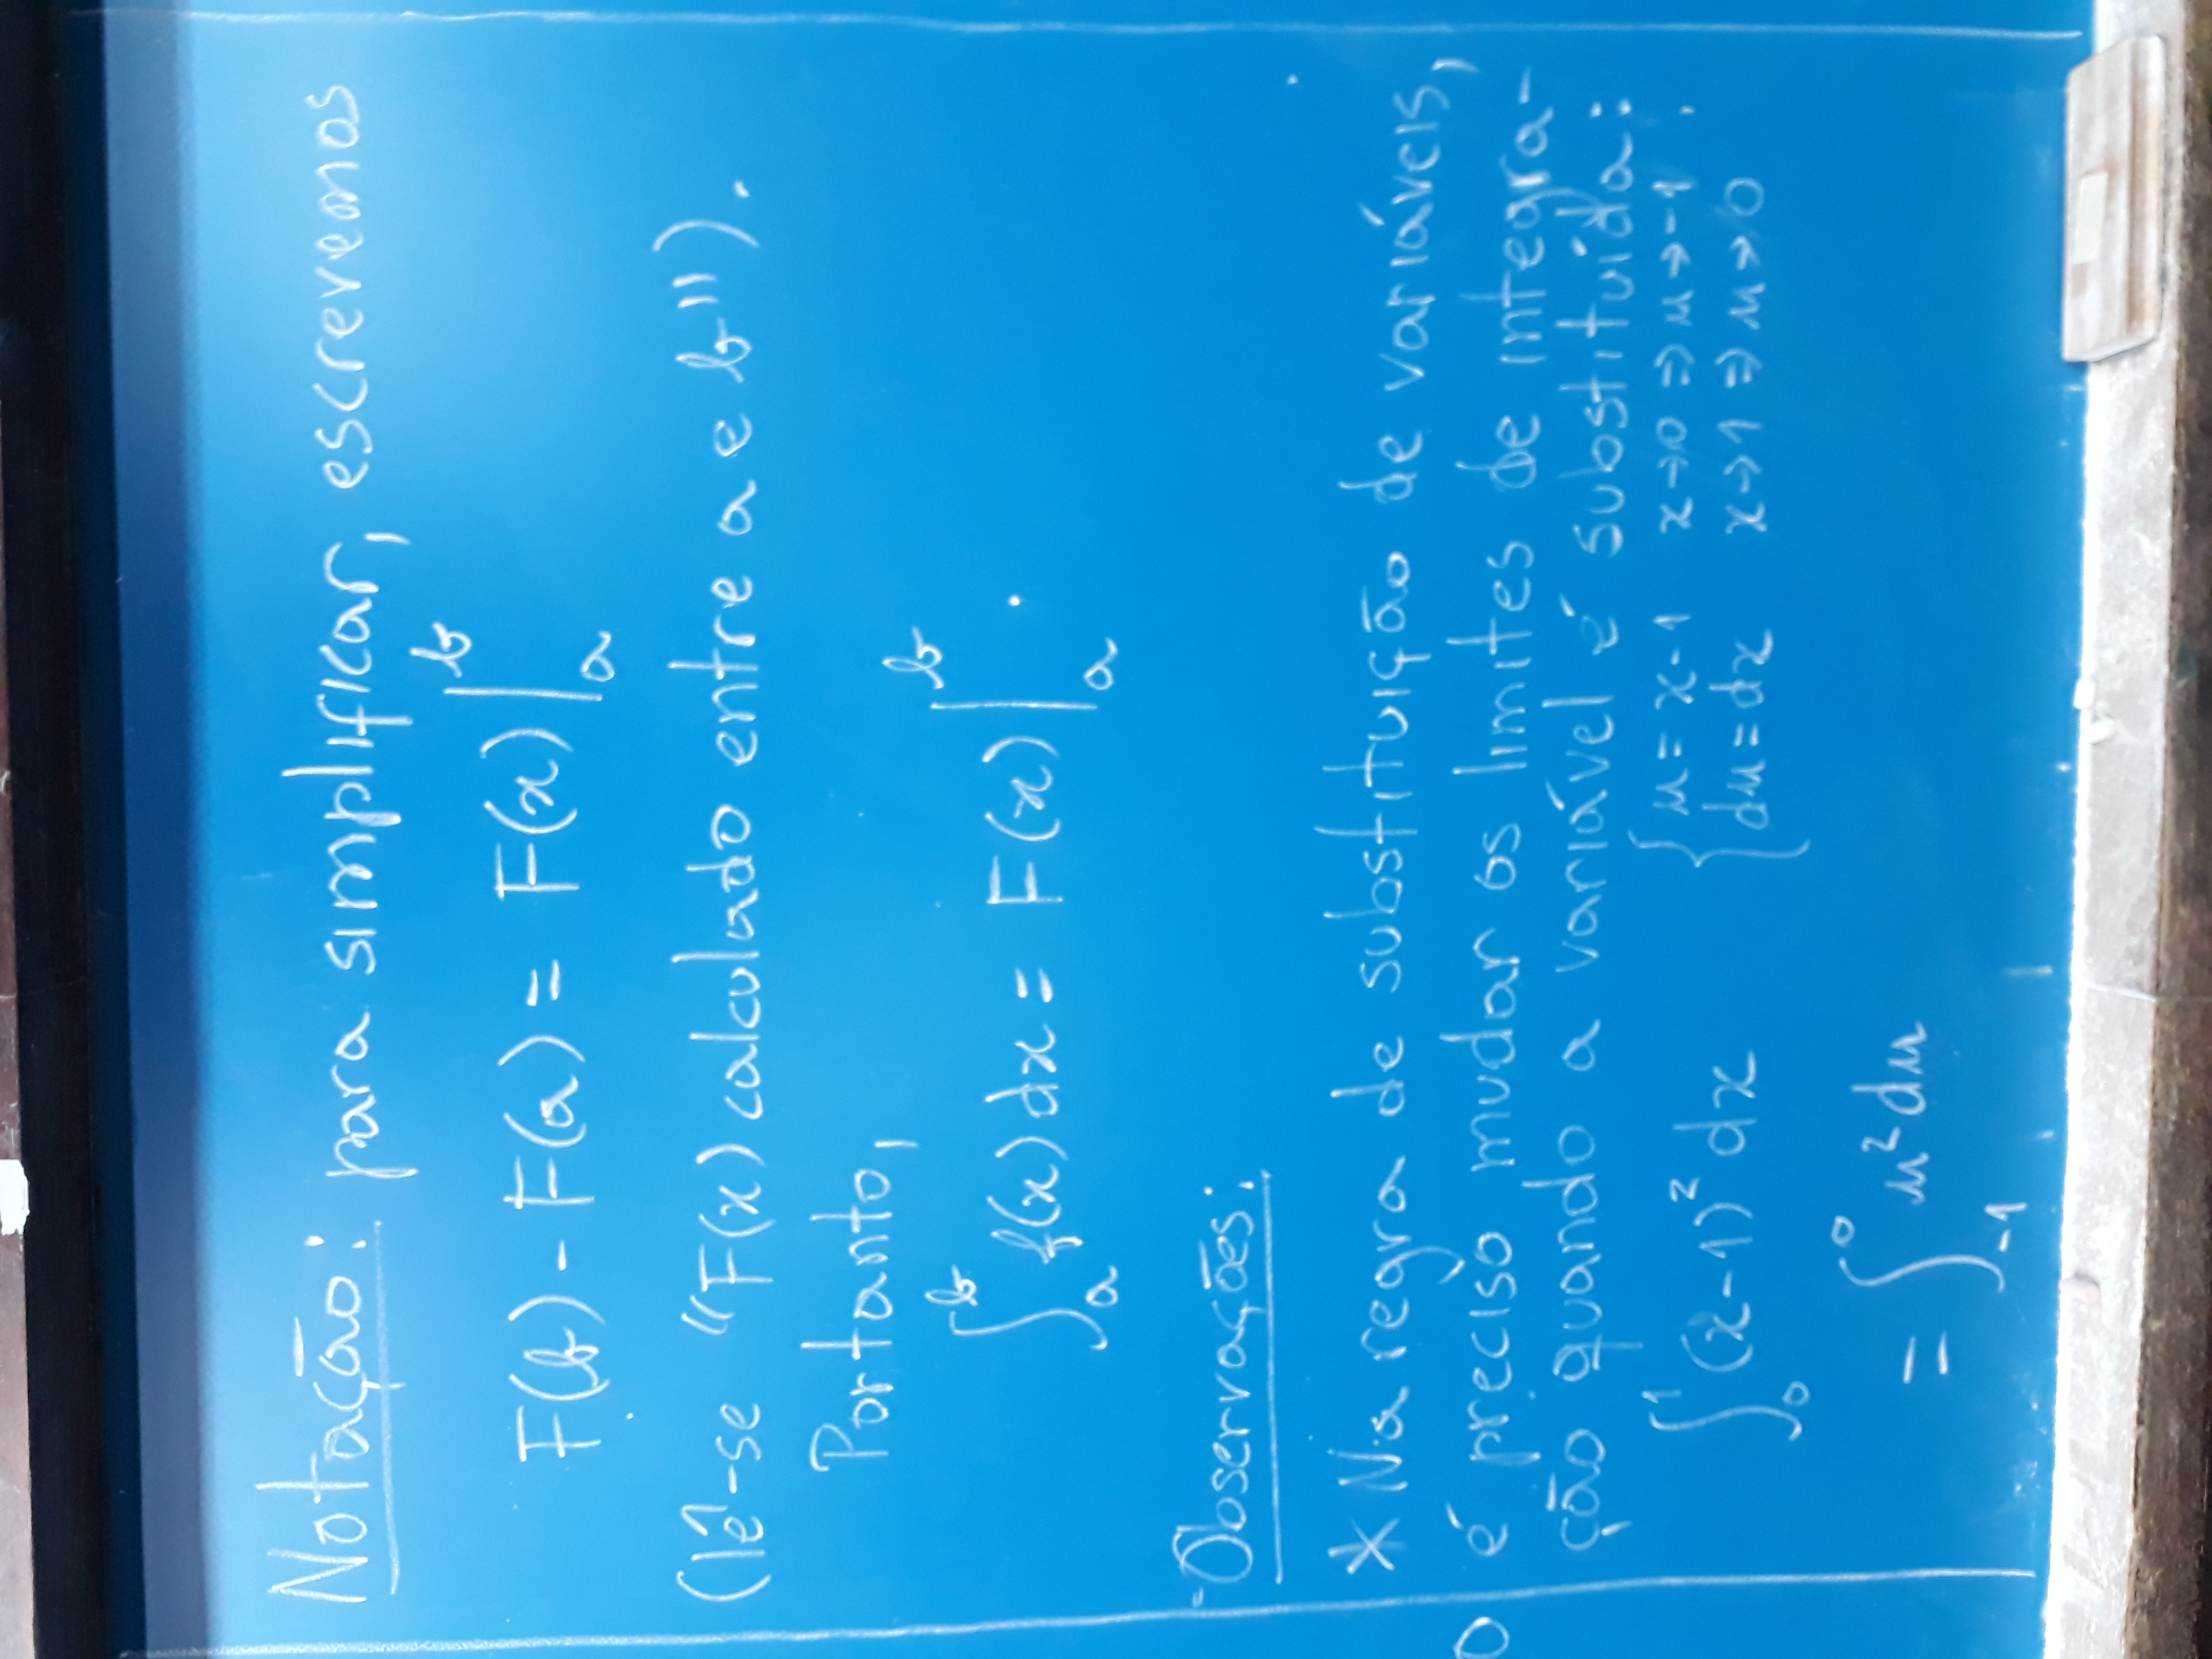 Notação: para simplificar, escrevemos
F(b) - F(a) = F(x) |_a^b
(lê-se "F(x) calculado entre a e b").
Portanto,
∫_a^b f(x) dx = F(x) |_a^b .
Observações:
* Na regra de substituição de variáveis,
é preciso mudar os limites de integra-
ção quando a variável é substituída:
∫_0^1 (x-1)² dx { u = x-1 x→0 ⇒ u→-1
du = dx x→1 ⇒ u→0
= ∫_{-1}^0 u² du